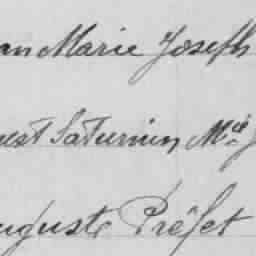 an Marie Joseph
uest Saturnin Mcel J
uguste Préfet